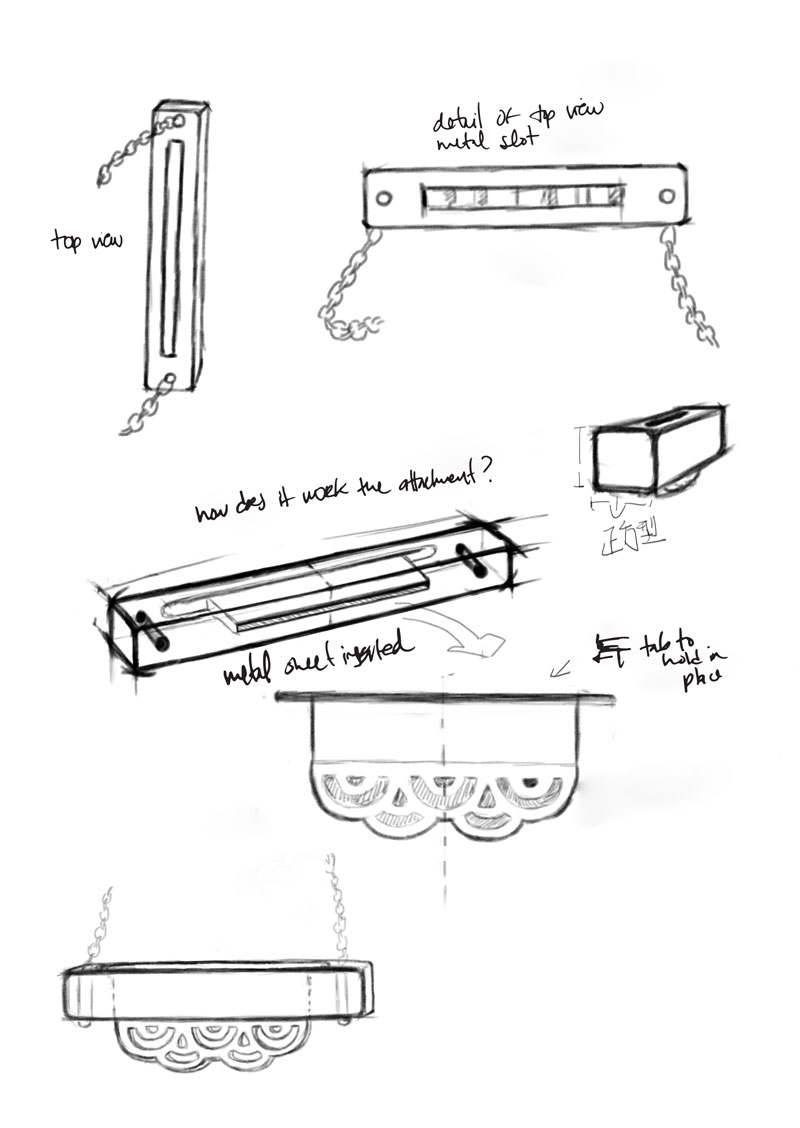 detail of top view
metal slot
top view
how does it work the attachment?
正方型
metal sheet inserted
tab to
hold in
place